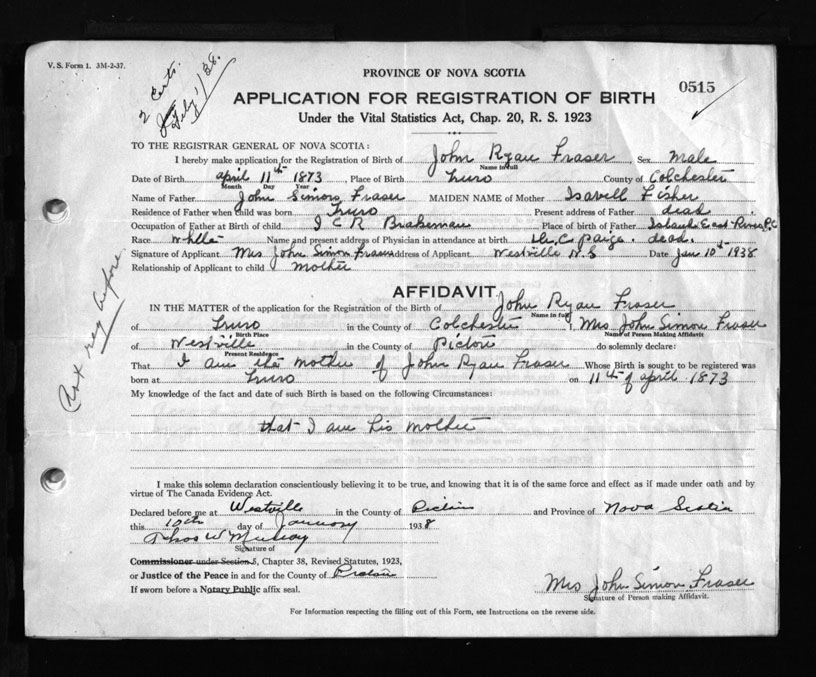 V. S. Form 1. 3M-2-37.
2 Certs.
Feby 1/38.
PROVINCE OF NOVA SCOTIA
0515
APPLICATION FOR REGISTRATION OF BIRTH
Under the Vital Statistics Act, Chap. 20, R. S. 1923
TO THE REGISTRAR GENERAL OF NOVA SCOTIA:
I hereby make application for the Registration of Birth of John Ryan Fraser Sex Male
Name in full
Date of Birth April 11th 1873, Place of Birth Truro County of Colchester
Month Day Year
Name of Father John Simon Fraser MAIDEN NAME of Mother Isabell Fisher
Residence of Father when child was born Truro Present address of Father dead
Occupation of Father at Birth of child I C R Brakeman Place of birth of Father Island East River, P.C.
Race white Name and present address of Physician in attendance at birth Dr. C. Paige. dead.
Signature of Applicant Mrs John Simon Fraser Address of Applicant Westville N.S Date Jan 10th 1938
Relationship of Applicant to child Mother
Not reg before
AFFIDAVIT
IN THE MATTER of the application for the Registration of the Birth of John Ryan Fraser
Name in full
of Truro in the County of Colchester I, Mrs John Simon Fraser
Birth Place Name of Person Making Affidavit
of Westville in the County of Pictou do solemnly declare:
Present Residence
That I am the mother of John Ryan Fraser Whose Birth is sought to be registered was
born at Truro on 11th of April 1873
My knowledge of the fact and date of such Birth is based on the following Circumstances:
that I am his mother
I make this solemn declaration conscientiously believing it to be true, and knowing that it is of the same force and effect as if made under oath and by
virtue of The Canada Evidence Act.
Declared before me at Westville in the County of Pictou and Province of Nova Scotia
this 10th day of January 1938
Thos W Murray
Signature of
Commissioner under Section 5, Chapter 38, Revised Statutes, 1923,
or Justice of the Peace in and for the County of Pictou
If sworn before a Notary Public affix seal.
Mrs John Simon Fraser
Signature of Person making Affidavit.
For Information respecting the filling out of this Form, see Instructions on the reverse side.